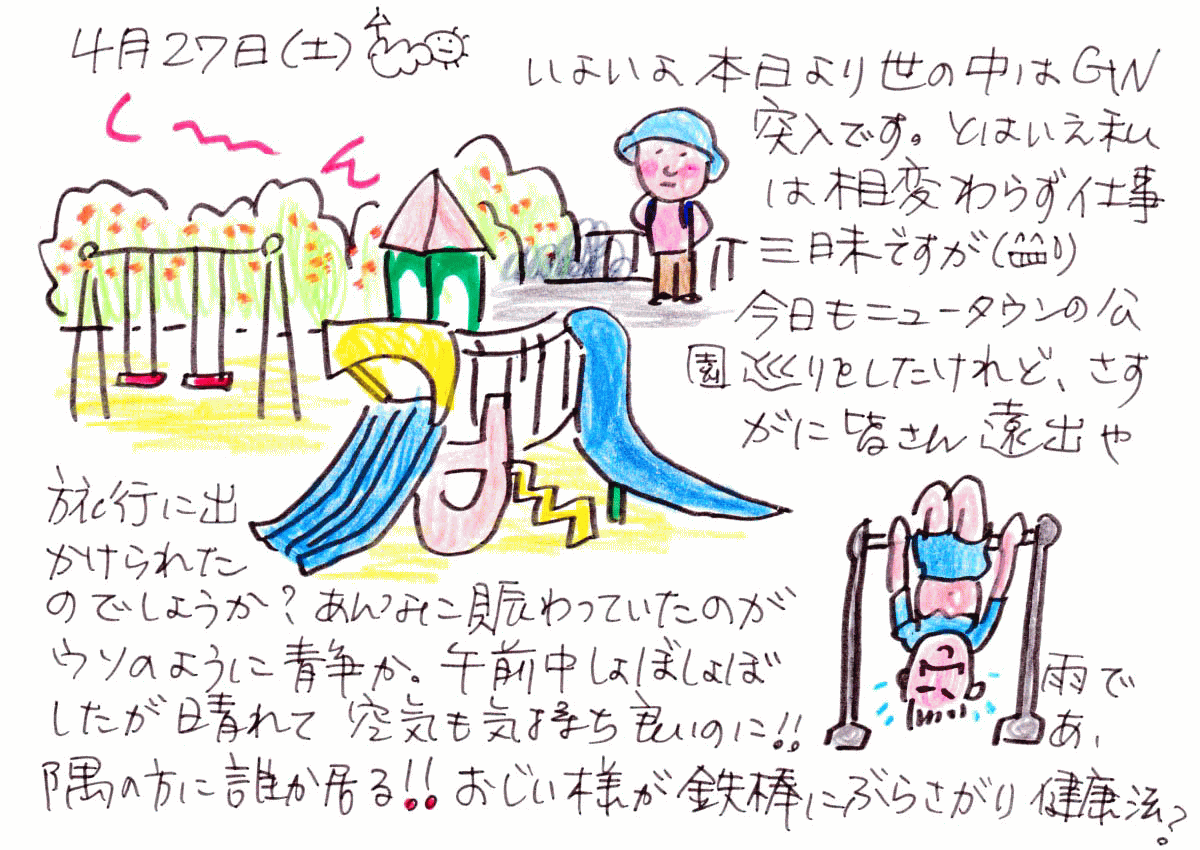 4月27日(土)
し〜ん
いよいよ本日より世の中はGW
突入です。とはいえ私
は相変わらず仕事
三昧ですが(皿)
今日もニュータウンの公
園巡りをしたけれど、さす
がに皆さん遠出や
旅行に出
かけられた
のでしょうか?あんなに賑わっていたのが
ウソのように静か。午前中しょぼしょぼ
雨で
したが晴れて空気も気持ち良いのに!!
あ、
隅の方に誰か居る!!おじい様が鉄棒にぶらさがり健康法?